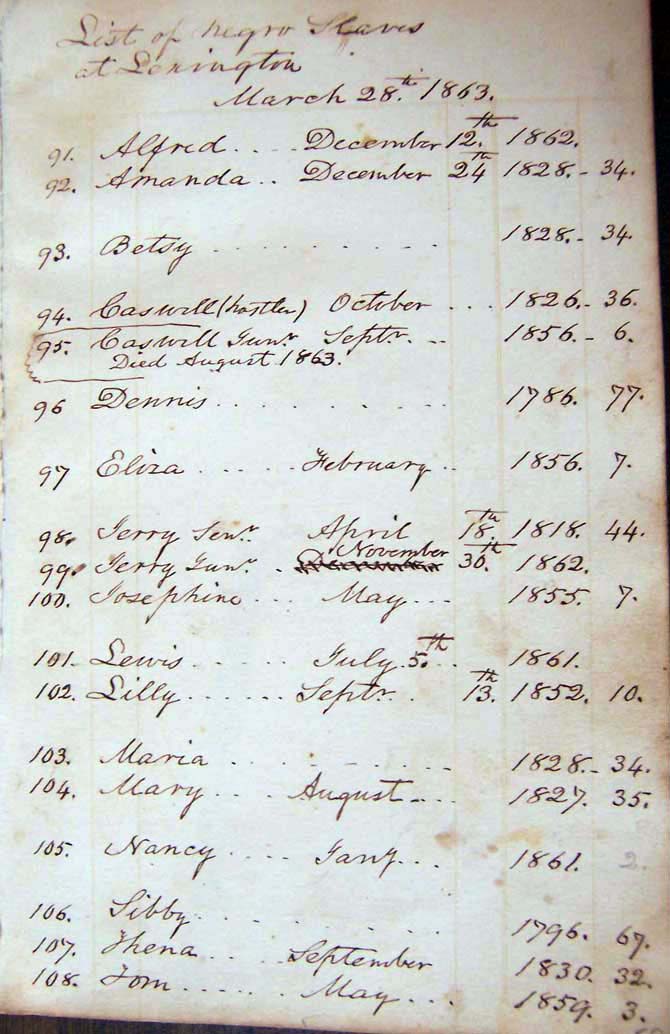 List of negro Slaves
at Lexington
March 28.th 1863.
91. Alfred .... December 12.th 1862.
92. Amanda .. December 24th 1828.- 34.
93. Betsy .......... 1828.- 34.
94. Caswell (hostler) October ... 1826.- 36.
95. Caswell Junr. Septr. .. 1856- 6.
Died August 1863.
96 Dennis ......... 1786. 77.
97 Eliza ..... February .. 1856. 7.
98. Jerry Senr. April 18.th 1818. 44.
99. Jerry Junr. . November 30.th 1862.
100. Josephine ... May ... 1855. 7.
101. Lewis ...... July 5.th .. 1861.
102. Lilly ...... Septr. . 13.th 1852. 10.
103. Maria ......... 1828.- 34.
104. Mary .... August ... 1827. 35.
105. Nancy .... Jany. ... 1861. 2.
106. Sibby ......... 1796. 67.
107. Thena .... September 1830. 32.
108. Tom ...... May ... 1859. 3.